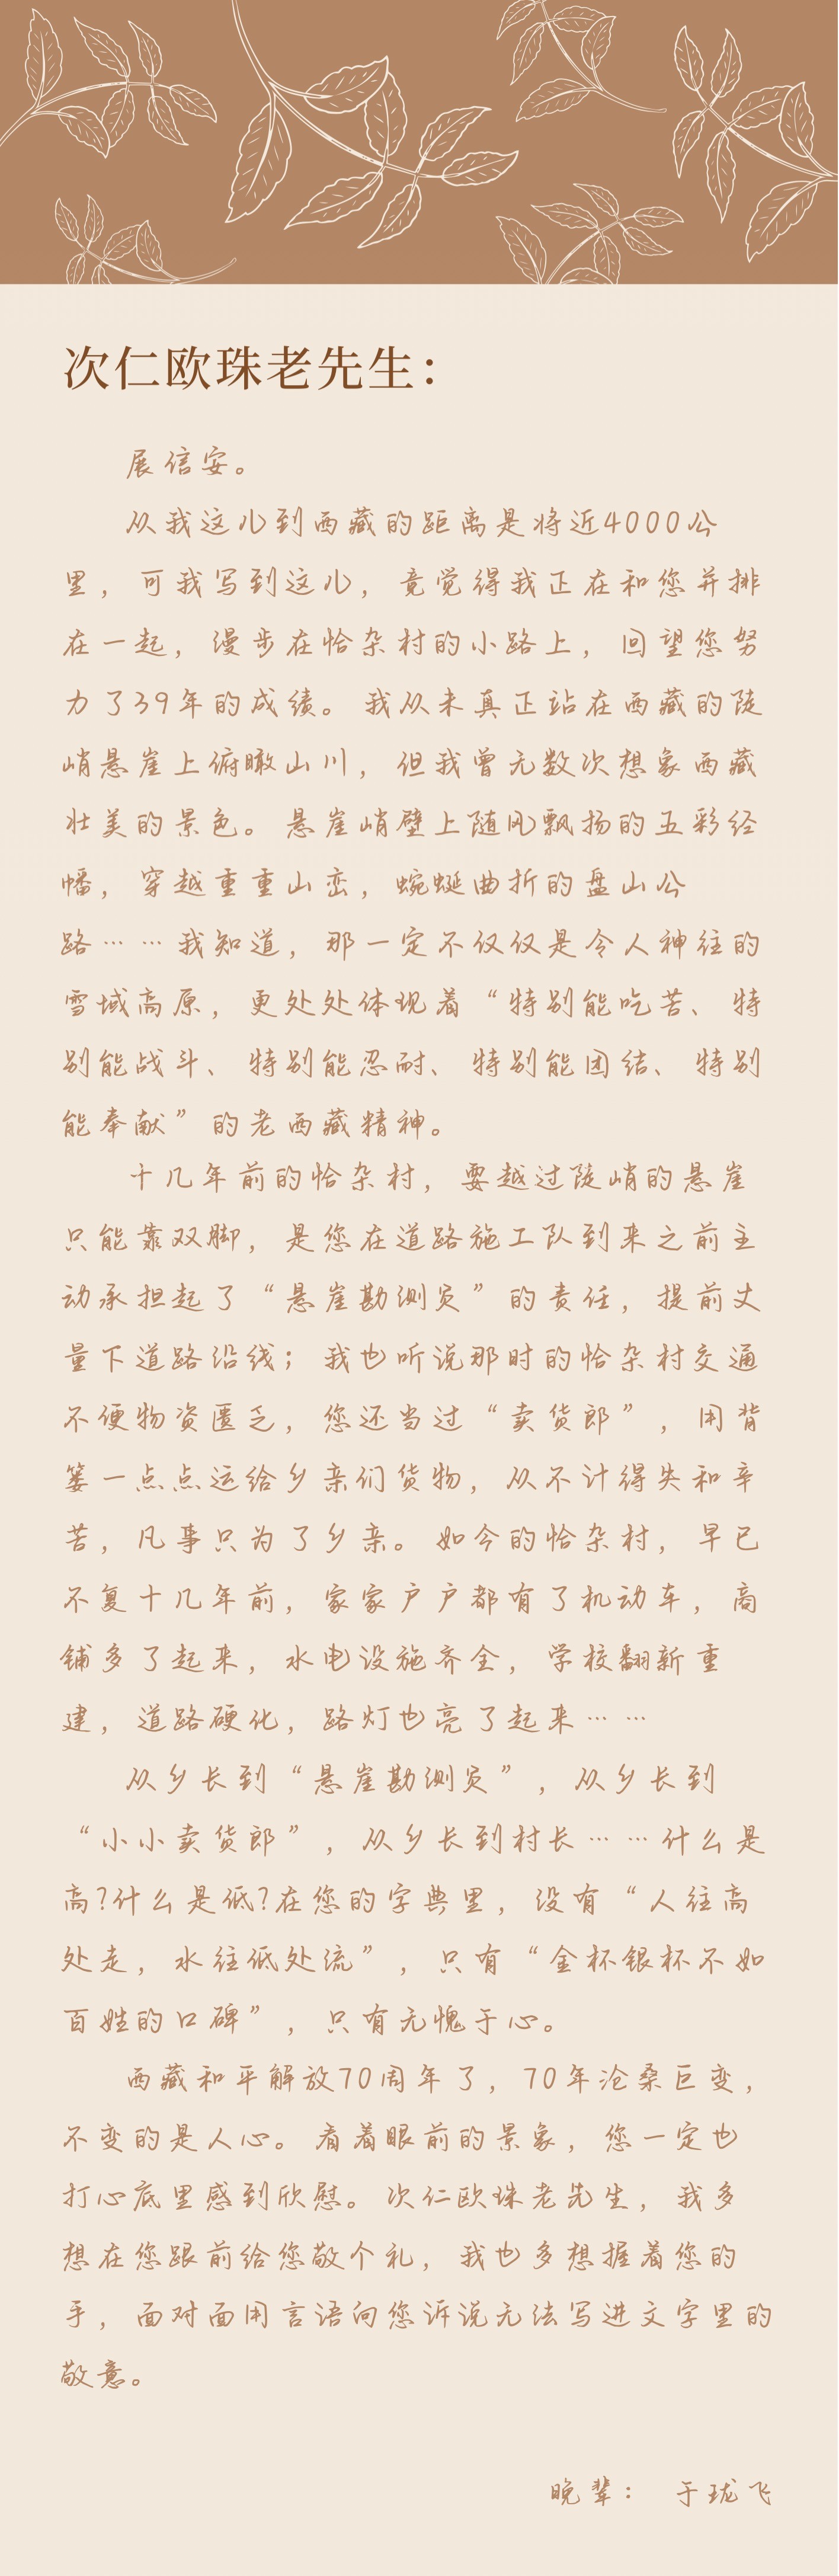 次仁欧珠老先生：
展信安。
从我这儿到西藏的距离是将近4000公
里，可我写到这儿，竟觉得我正在和您并排
在一起，漫步在恰杂村的小路上，回望您努
力了39年的成绩。我从未真正站在西藏的陡
峭悬崖上俯瞰山川，但我曾无数次想象西藏
壮美的景色。悬崖峭壁上随风飘扬的五彩经
幡，穿越重重山峦，蜿蜒曲折的盘山公
路……我知道，那一定不仅仅是令人神往的
雪域高原，更处处体现着“特别能吃苦、特
别能战斗、特别能忍耐、特别能团结、特别
能奉献”的老西藏精神。
十几年前的恰杂村，要越过陡峭的悬崖
只能靠双脚，是您在道路施工队到来之前主
动承担起了“悬崖勘测员”的责任，提前丈
量下道路沿线；我也听说那时的恰杂村交通
不便物资匮乏，您还当过“卖货郎”，用背
篓一点点运给乡亲们货物，从不计得失和辛
苦，凡事只为了乡亲。如今的恰杂村，早已
不复十几年前，家家户户都有了机动车，商
铺多了起来，水电设施齐全，学校翻新重
建，道路硬化，路灯也亮了起来……
从乡长到“悬崖勘测员”，从乡长到
“小小卖货郎”，从乡长到村长……什么是
高?什么是低?在您的字典里，没有“人往高
处走，水往低处流”，只有“金杯银杯不如
百姓的口碑”，只有无愧于心。
西藏和平解放70周年了，70年沧桑巨变，
不变的是人心。看着眼前的景象，您一定也
打心底里感到欣慰。次仁欧珠老先生，我多
想在您跟前给您敬个礼，我也多想握着您的
手，面对面用言语向您诉说无法写进文字里的
敬意。
晚辈： 于珑飞